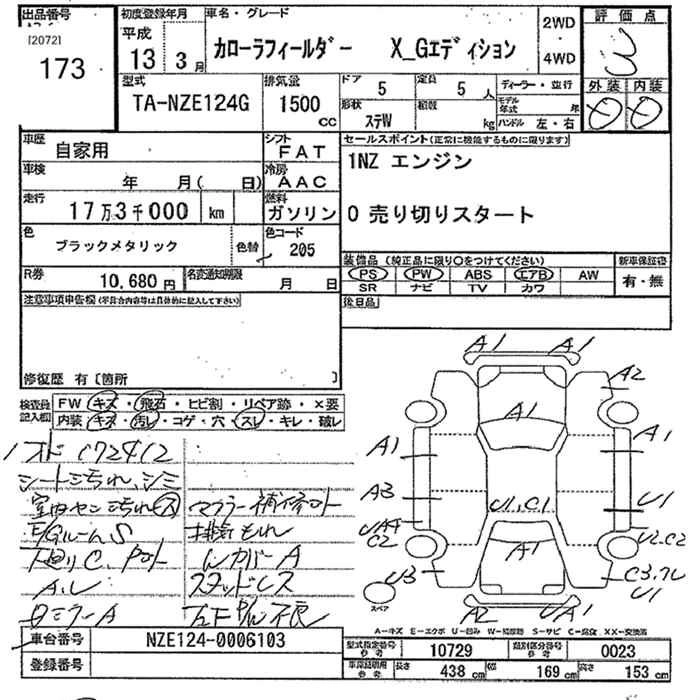 出品番号
[2072]
173
初度登録年月
平成
13年3月
車名・グレード
カローラフィールダー X_Gエディション
2WD
・
4WD
評価点
外装 内装
型式
TA-NZE124G
排気量
1500
cc
ドア
5
定員
5人
ディーラー・並行
形状
ステW
積載
kg
モデル年式
年
ハンドル 左・右
車歴
自家用
シフト
FAT
車検
年 月( 日)
冷房
AAC
走行
17万3千000 km
燃料
ガソリン
色
ブラックメタリック
色替
色コード
205
R券
10,680円
名変通知期限
月 日
セールスポイント(正常に機能するものに限ります)
1NZ エンジン
0 売り切りスタート
装備品(純正品に限り○をつけてください)
新車保証書
PS PW ABS エアB AW
SR ナビ TV カワ
有・無
後日品
注意事項申告欄(不具合内容等は具体的に記入して下さい)
修復歴 有〔箇所 〕
検査員記入欄
FW キズ・飛石・ヒビ割・リペア跡・×要
内装 キズ・汚レ・コゲ・穴・スレ・キレ・破レ
シート汚れ、シミ
マフラー補修
排気もれ
E/GルームS
WカバーA
スタッドレス
A1 A1
A2
A1
A1 A1
A3
U1,C1
U1
UA4
C2
U2,C2
A1
U3
U1
A2 UA1
スペア
A-キズ E-エクボ U-凹み W-補修跡 S-サビ C-腐食 XX-交換済
車台番号
NZE124-0006103
登録番号
型式指定番号
参考
10729
類別区分番号
参考
0023
車庫証明用
参考
長さ
438 cm
幅
169 cm
高さ
153 cm